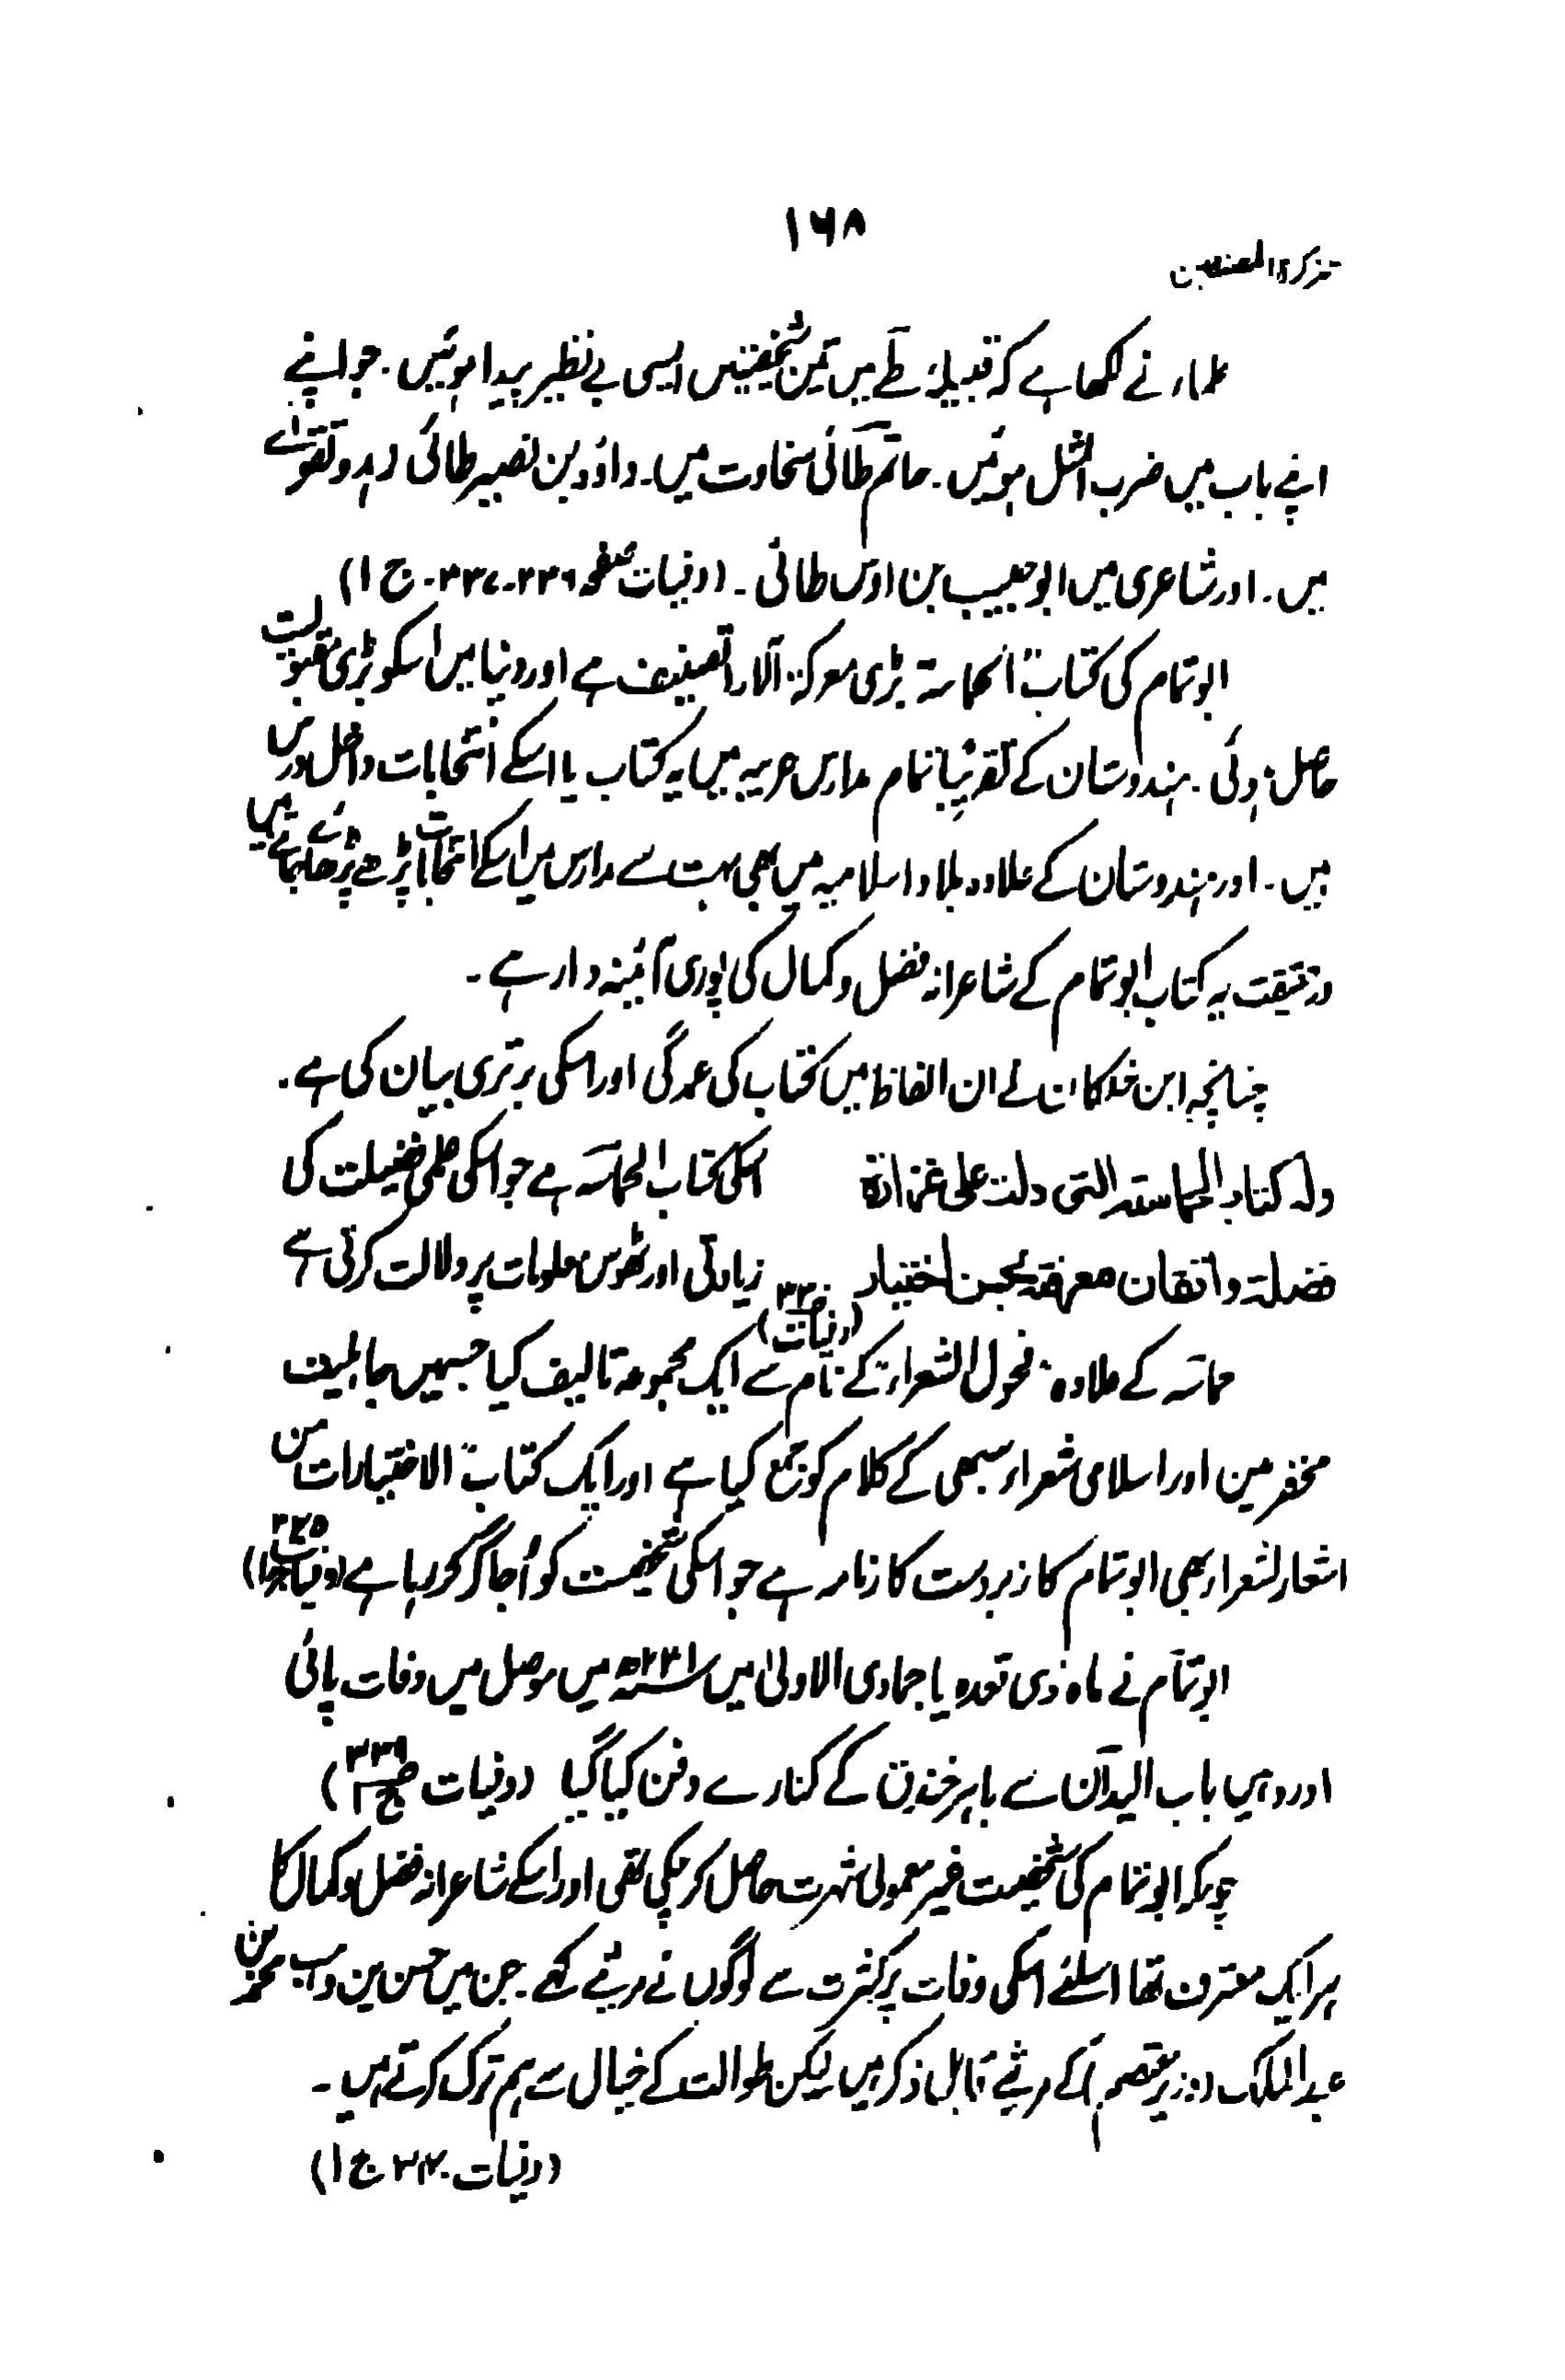 ۱۶۸
تذکرۃ المصنفین
علماء نے لکھا ہے کہ قبیلۂ طے میں تین شخصیتیں ایسی بے نظیر پیدا ہوئیں۔ جو اپنے
اپنے باب میں ضرب المثل ہوئیں۔ حاتم طائی سخاوت میں۔ داؤد بن نصیر طائی زہد و تقوے
میں۔ اور شاعری میں ابو حبیب بن اوس طائی۔ (وفیات صفحہ ۳۳۶-۳۳۷۔ ج ۱)
ابو تمام کی کتاب "الحماسۃ" بڑی معرکۃ الآراء تصنیف ہے اور دنیا میں اسکو بڑی مقبولیت
حاصل ہوئی۔ ہندوستان کے تقریباً تمام مدارس عربیہ میں یہ کتاب یا اسکے انتخابات داخل درس
ہیں۔ اور ہندوستان کے علاوہ بلاد اسلامیہ میں بھی بہت سے مدارس میں اسکے انتخابات پڑھے پڑھائے جاتے ہیں
درحقیقت یہ کتاب ابو تمام کے شاعرانہ فضل و کمال کی پوری آئینہ دار ہے۔
چنانچہ ابن خلکان نے ان الفاظ میں کتاب کی عمدگی اور اسکی برتری بیان کی ہے۔
ولہ کتاب الحماسۃ التی دلت علی غزارۃ اسکی کتاب الحماسہ ہے جو اسکی علمی فضیلت کی
فضلہ واتقان معرفتہ بحسن اختیار (وفیات) زیادتی اور ٹھوس معلومات پر دلالت کرتی ہے
حماسہ کے علاوہ "فحول الشعراء" کے نام سے ایک مجموعہ تالیف کیا جسمیں جاہلیت
مخضرمین اور اسلامی شعراء سبھی کے کلام کو جمع کیا ہے اور ایک کتاب "الاختیارات من
اشعار الشعراء بھی ابو تمام کا زبردست کارنامہ ہے جو اسکی شخصیت کو اُجاگر کر رہا ہے (وفیات ۳۳۵ ج۱)
ابو تمام نے ماہ ذی قعدہ یا جمادی الاولیٰ میں ۲۳۱ھ میں موصل میں وفات پائی
اور وہیں باب المیدان سے باہر خندق کے کنارے دفن کیا گیا (وفیات ص ۳۳۹ ج ۱)
چونکہ ابو تمام کی شخصیت غیر معمولی شہرت حاصل کر چکی تھی اور اسکے شاعرانہ فضل و کمال کا
ہر ایک معترف تھا اسلئے اسکی وفات پر کثرت سے لوگوں نے مرثیے کہے۔ جن میں حسن بن وہب محمد بن
عبد الملک (وزیر معتصم) کے مرثیے قابل ذکر ہیں لیکن طوالت کے خیال سے ہم ترک کرتے ہیں۔
(وفیات ۳۴۰ ج ۱)